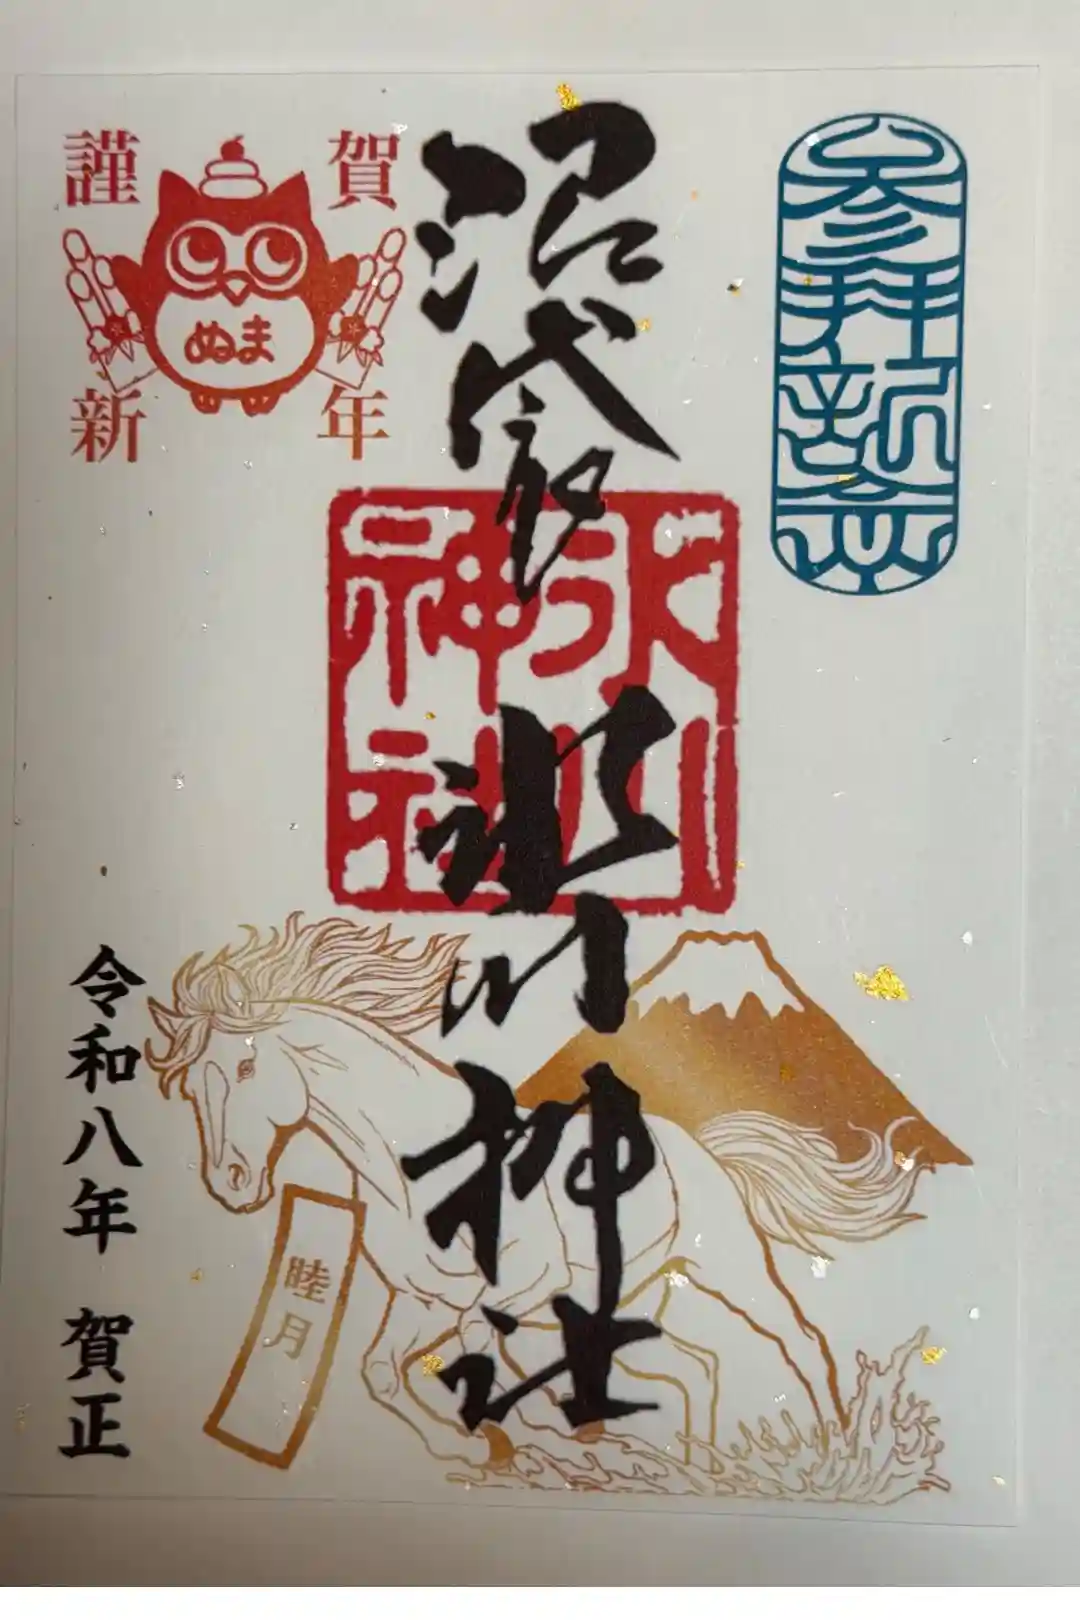 参拝記念
沼袋
氷川神社
氷川
神社
謹賀
新年
ぬま
睦月
令和八年 賀正